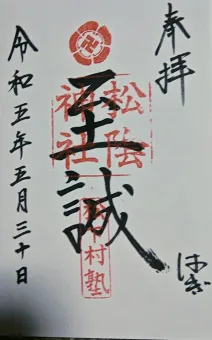 奉拝
はぎ
至誠
松陰神社
松下村塾
令和五年五月三十日